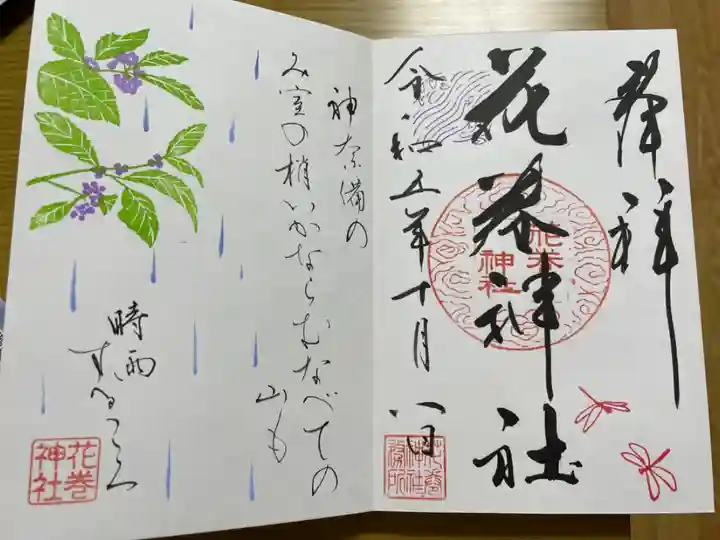 奉拝
花巻神社
花巻
神社
令和五年十月八日
花巻
神社
社務所
神奈備の
み室の梢いかならむなべての
山も
時雨
するころ
花巻
神社